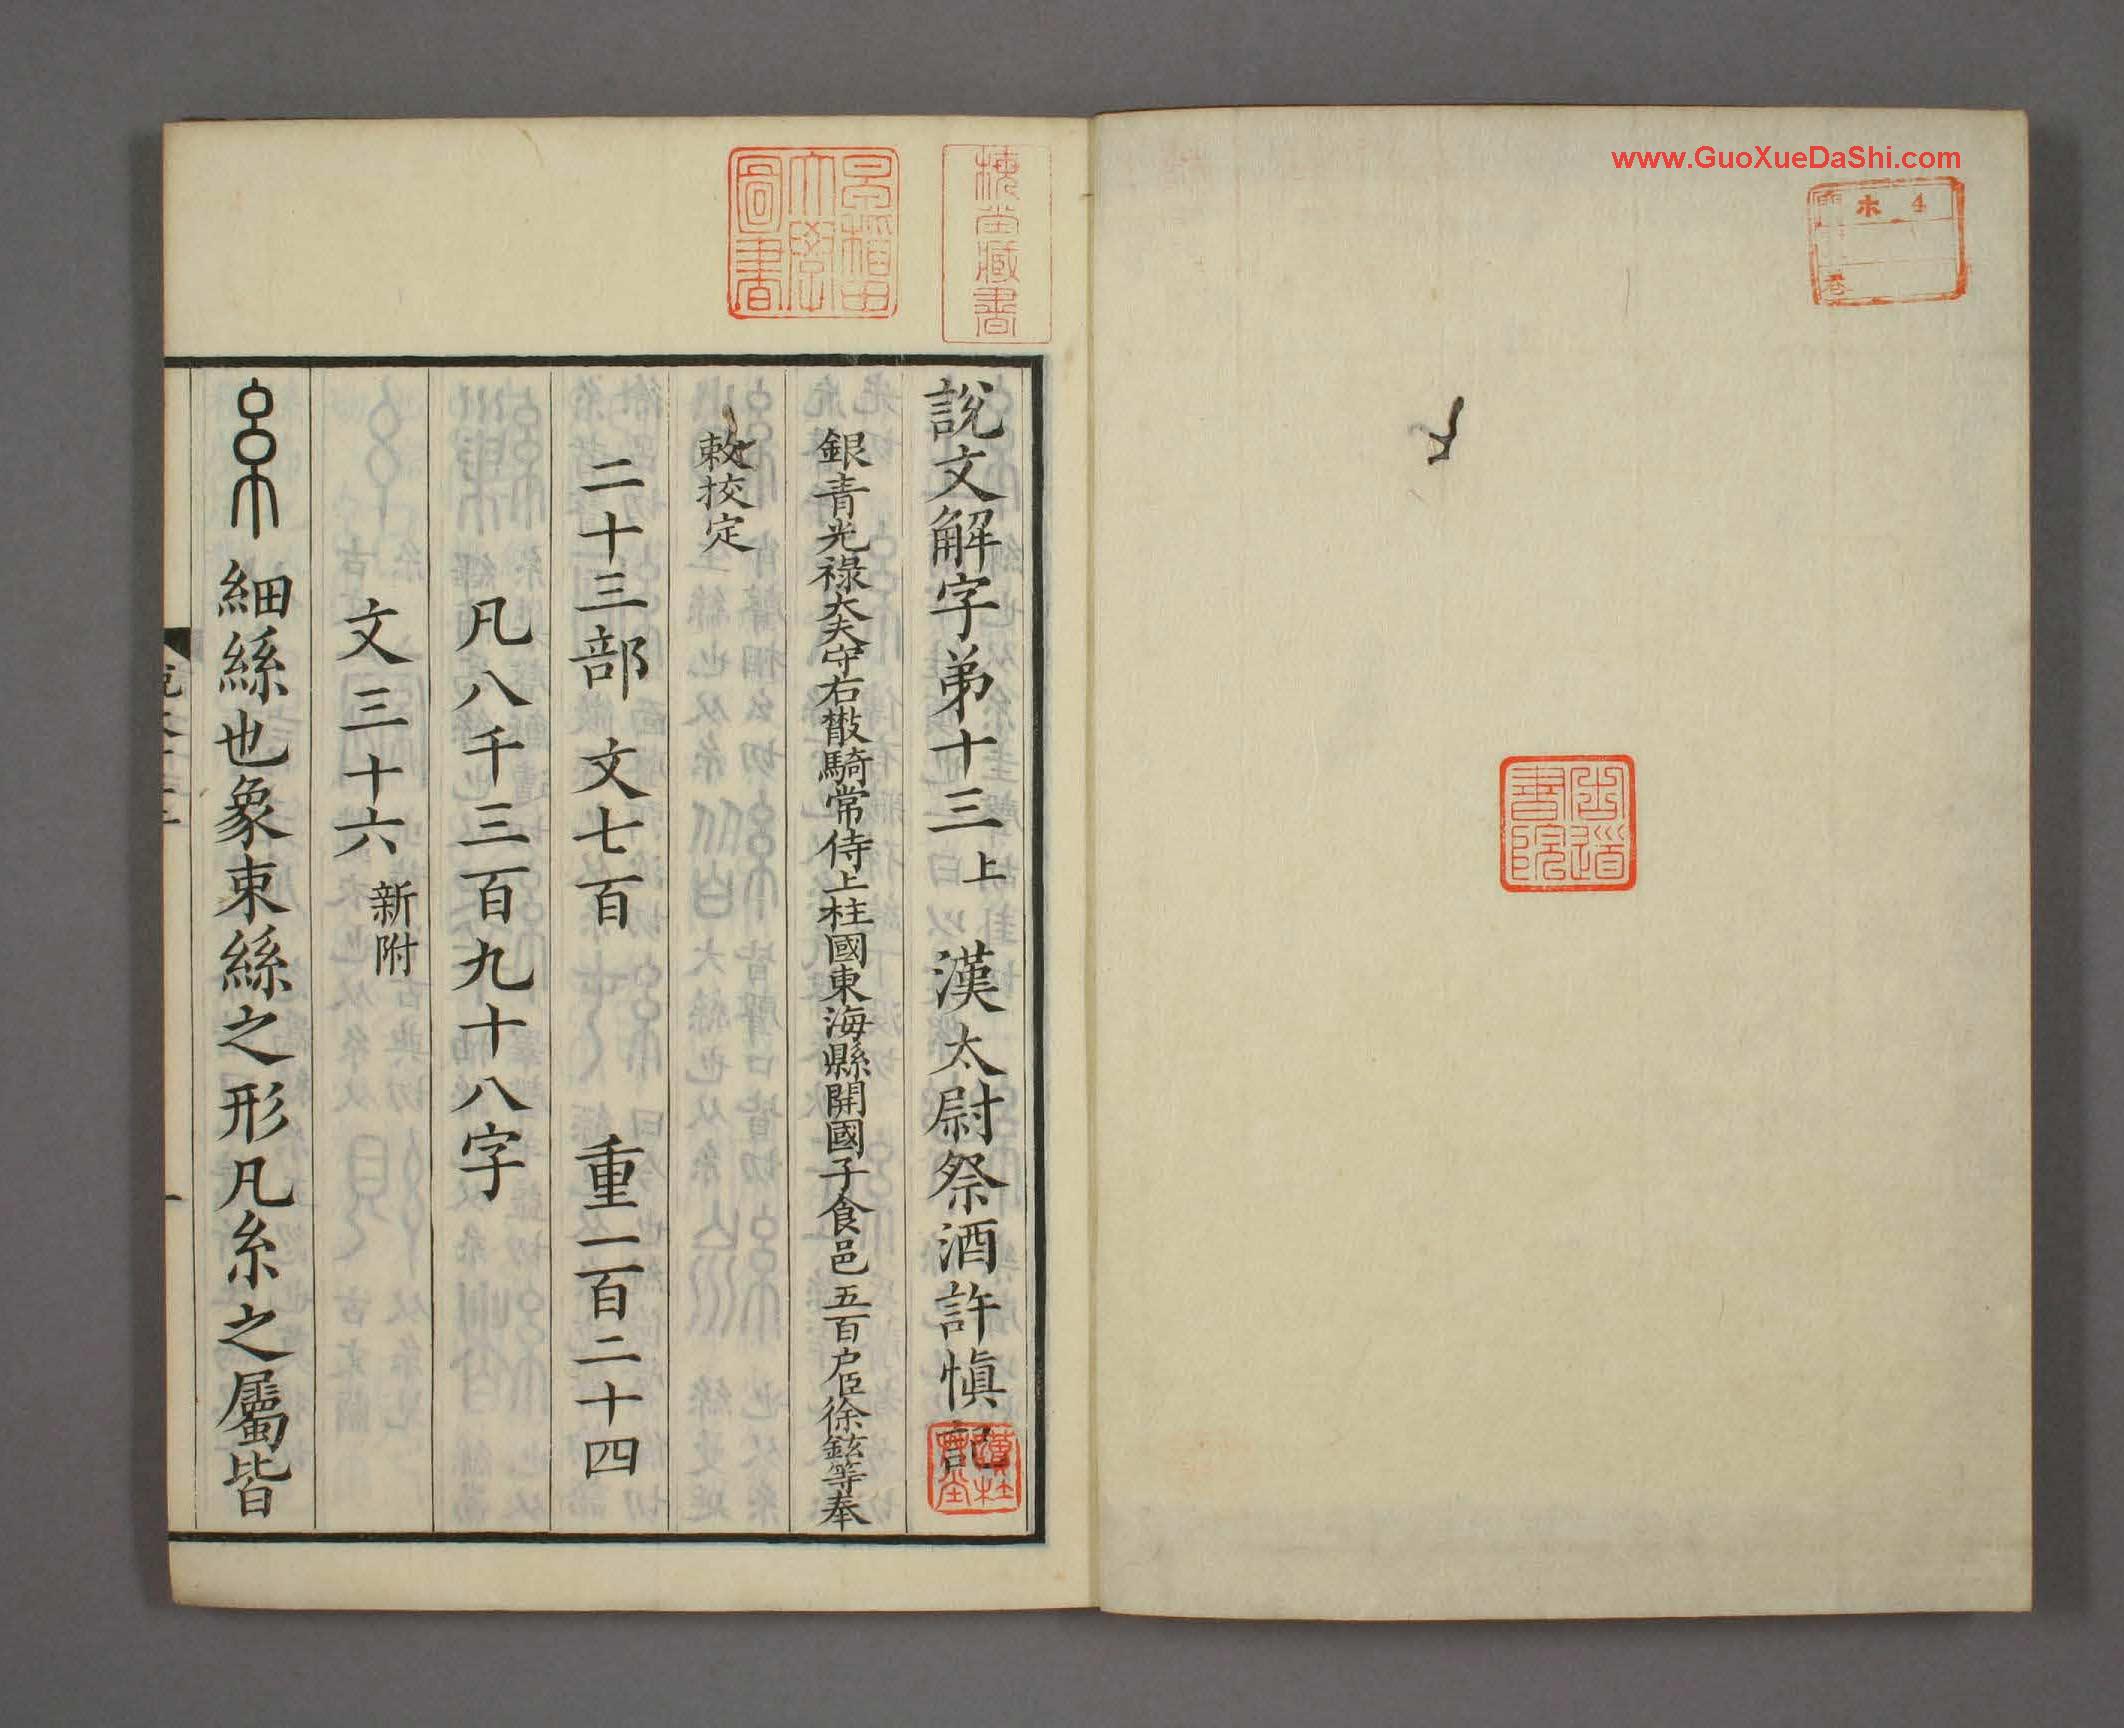 www.GuoXueDaShi.com
ホ 4
巻
書院
早稲田大學圖書
藏書
說文解字弟十三上 漢太尉祭酒許慎記
銀青光祿大夫守右散騎常侍上柱國東海縣開國子食邑五百户臣徐鉉等奉
敕挍定
二十三部 文七百 重一百二十四
凡八千三百九十八字
文三十六新附
糸 細絲也象束絲之形凡糸之屬皆